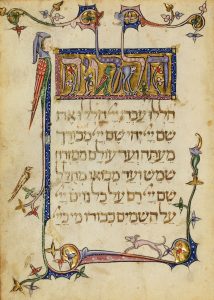 הללויה
הללו עבדי ייי הללו את
שם ייי יהי שם ייי מבורך
מעתה ועד עולם ממזרח
שמש עד מבואו מהלל
שם ייי רם על כל גוים ייי
על השמים כבודו מי כייי